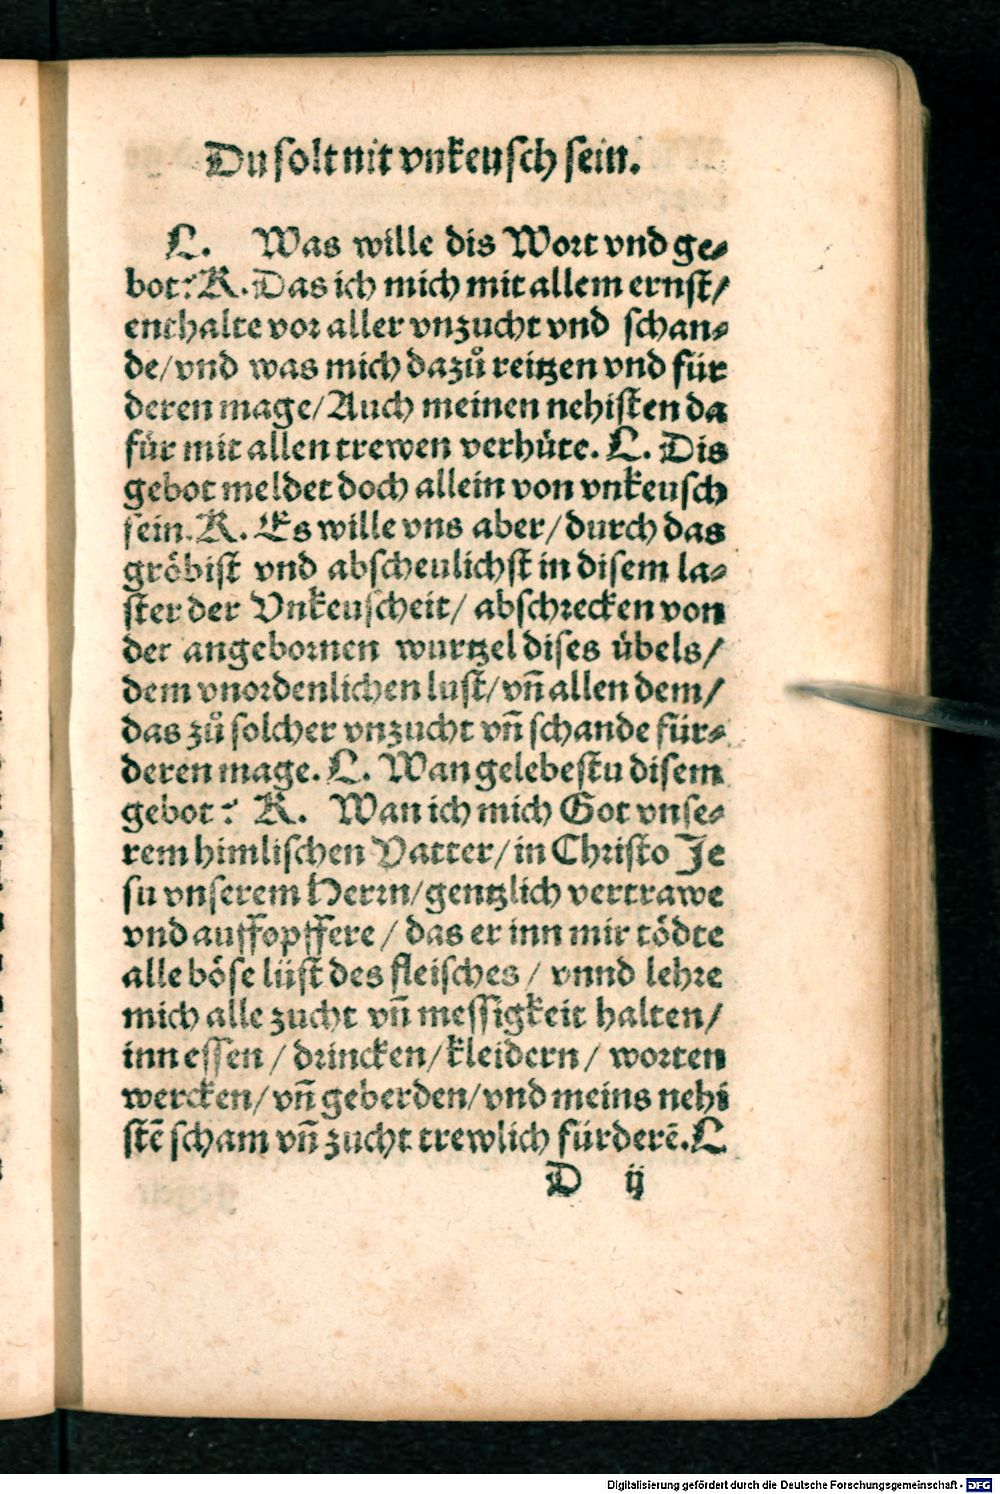 Du solt nit vnkeusch sein.
L. Was wille dis Wort vnd ge⸗
bot? K. Das ich mich mit allem ernst/
enthalte vor aller vnzucht vnd schan⸗
de/vnd was mich dazů reitzen vnd für
deren mage/Auch meinen nehisten da
für mit allen trewen verhüte. L. Dis
gebot meldet doch allein von vnkeusch
sein. K. Es wille vns aber/durch das
gröbist vnd abscheulichst in disem la⸗
ster der Vnkeuscheit/ abschrecken von
der angebornen wurtzel dises übels/
dem vnordenlichen lust/vñ allen dem/
das zů solcher vnzucht vñ schande für⸗
deren mage. L. Wan gelebestu disem
gebot? K. Wan ich mich Got vnse⸗
rem himlischen Vatter/in Christo Je
su vnserem Herrn/gentzlich vertrawe
vnd auffopffere / das er inn mir tödte
alle böse lüst des fleisches / vnnd lehre
mich alle zucht vñ messigkeit halten/
inn essen / drincken/kleidern/ worten
wercken/vñ geberden/vnd meins nehi
stẽ scham vñ zucht trewlich fürderẽ. L
D ij
Digitalisierung gefördert durch die Deutsche Forschungsgemeinschaft - DFG